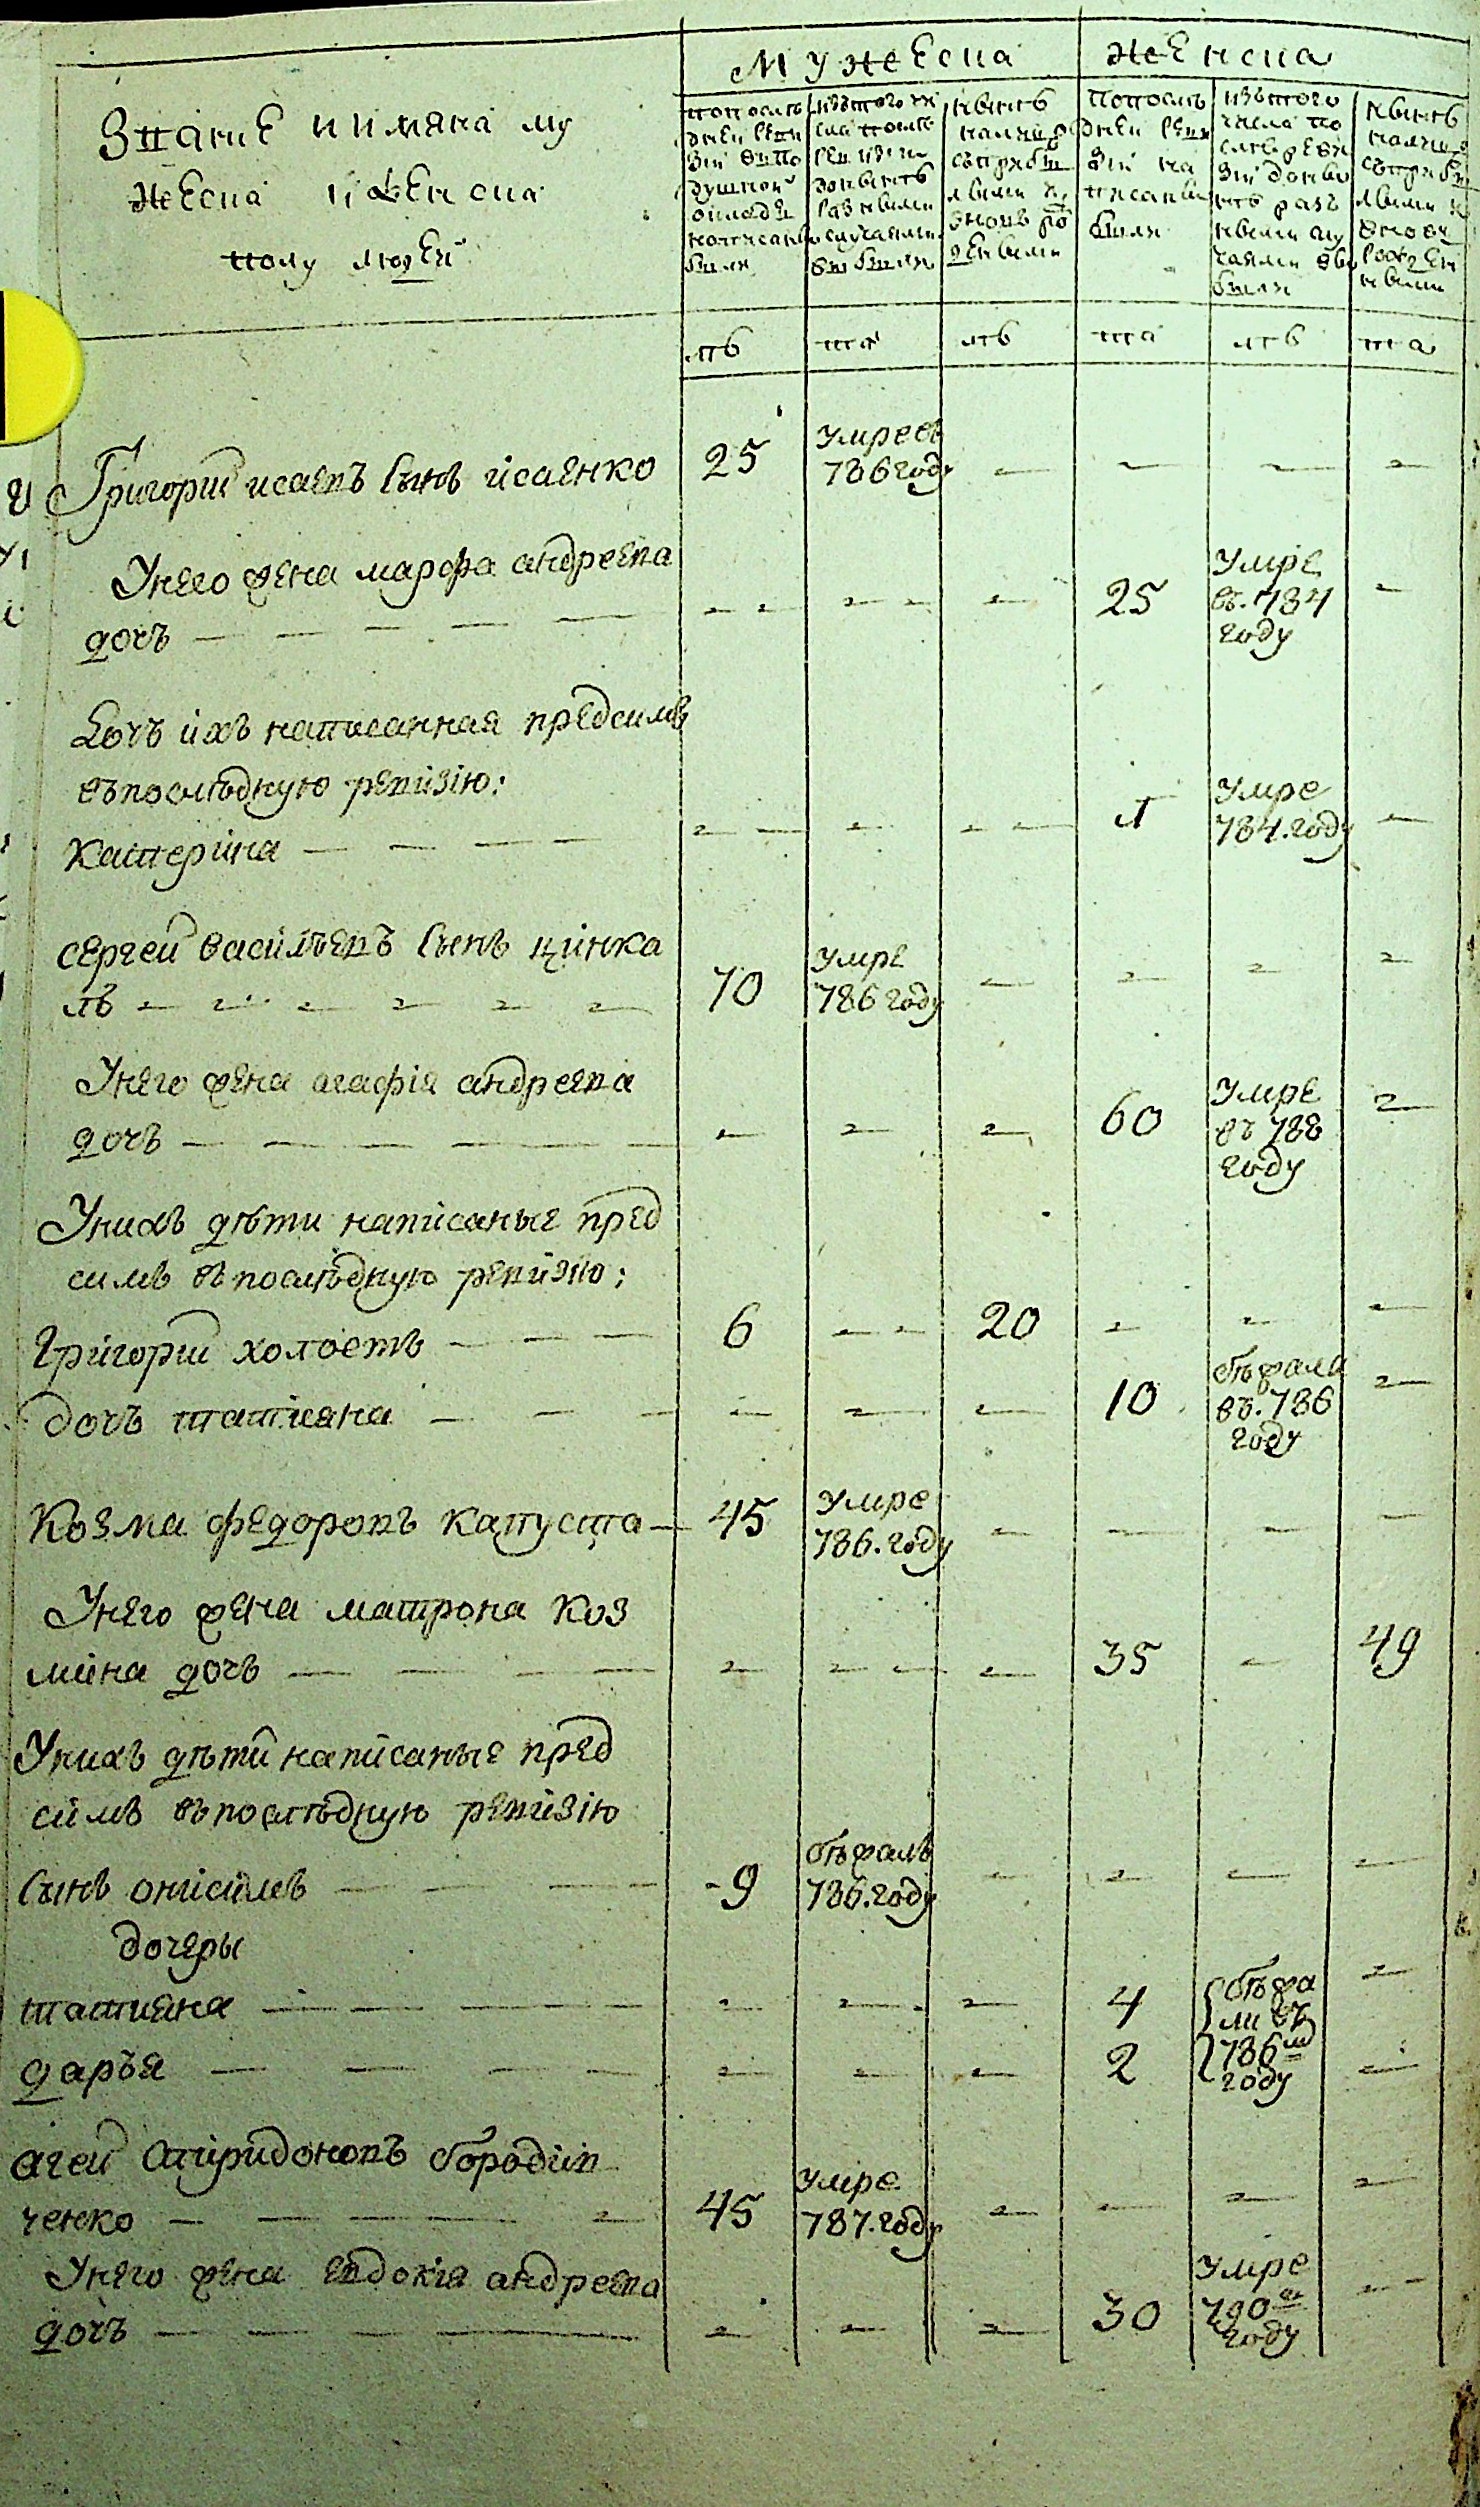 мужеска женска
Звание и имяна му
жеска и женска
полу людей
по послѣ
дней реви
зии въ по
душной
окладъ
написаны
были
изъ того чи
сла после
ревизии
до нынѣ
разными
случаями
выбыли
нынѣ
на лицо
съ прибы
лыми и
вновь ро
ждеными
по послѣ
дней реви
зии на
писаны
были
изъ того
числа по
слѣ реви
зии до ны
нѣ разъ
ными слу
чаями вы
были
нынѣ
на лицо
съ прибы
лыми и
вновь
рожден
ными
лѣ та лѣ та лѣ та
Григорий исаевъ сынъ исаенко 25 умре въ
786 году
У него жена марфа андреева
дочъ 25 умре
въ. 784
году
Дочъ ихъ написанная предсимъ
въ послѣдную ревизию:
катерина 1 умре
784. году
сергей васильевъ сынъ цинка
лъ 70 умре
786 году
У него жена агафия андреева
дочъ 60 умре
въ 788
году
У нихъ дѣти написаные пред
симъ въ послѣдную ревизию:
григорий холостъ 6 20
дочъ татияна 10 збѣжала
въ. 786
году
Козма федоровъ капуста 45 умре
786. году
У него жена матрона коз
мина дочъ 35 49
У нихъ дѣти написаные пред
симъ въ послѣдную ревизию
сынъ онисимъ 9 збѣжалъ
786. году
дочеры
татияна 4 збѣжа
ли въ
дарья 2 786м
году
агей спиридоновъ бородин
ченко 45 умре
787. году
У него жена евдокия андреева
дочъ 30 умре
790м
году